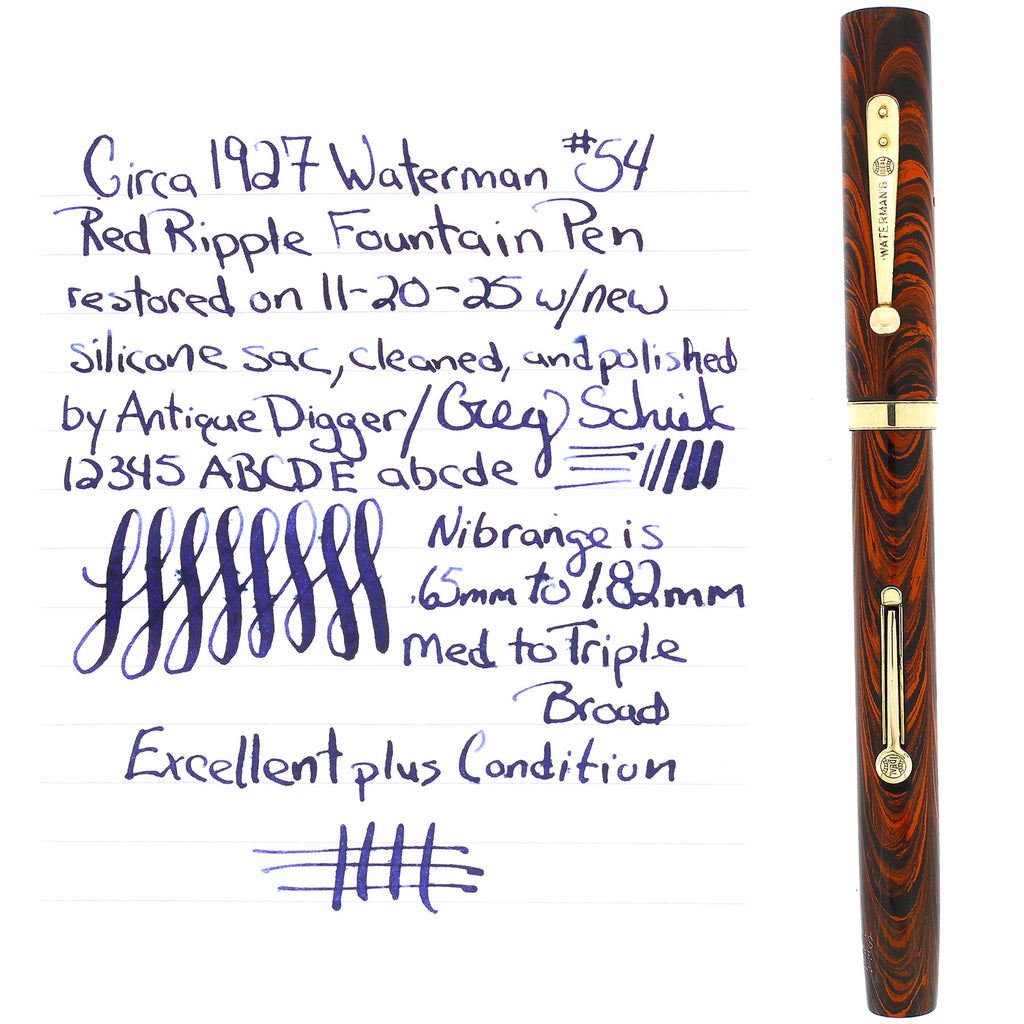 Circa 1927 Waterman #54
Red Ripple Fountain Pen
restored on 11-20-25 w/new
silicone sac, cleaned, and polished
by Antique Digger/Greg
12345 ABCDE abcde
Nib range is
.65mm to 1.82mm
Med to Triple
Broad
Excellent plus Condition
WATERMAN'S
IDEAL
IDEAL